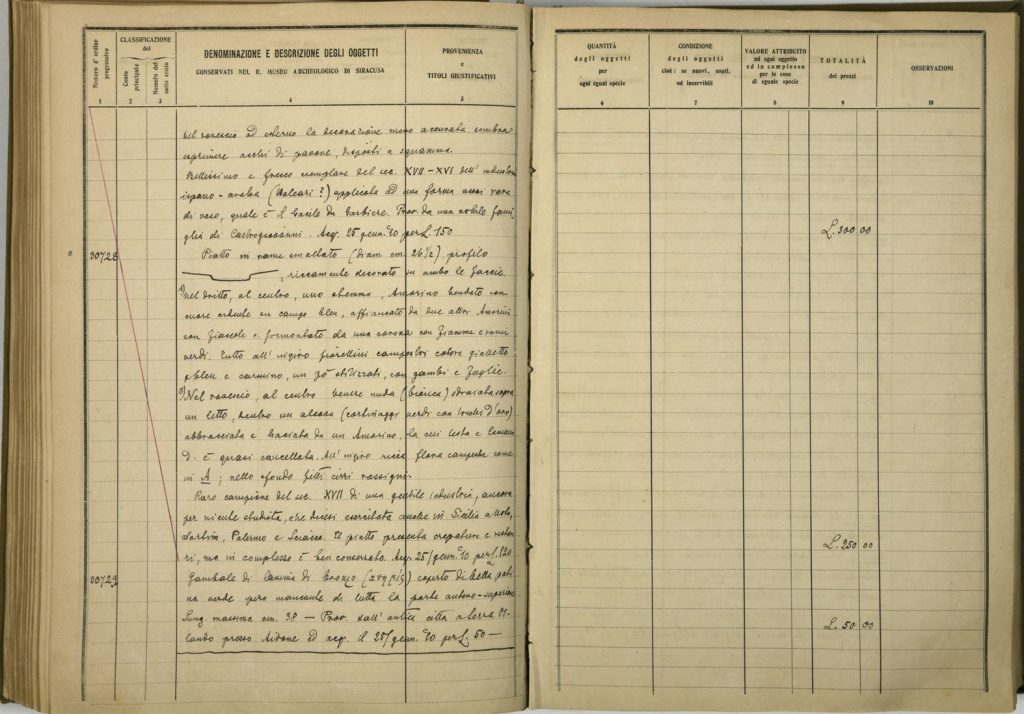 Numero d'ordine progressivo
CLASSIFICAZIONE
dei
Conto principale
Numero del sotto conto
DENOMINAZIONE E DESCRIZIONE DEGLI OGGETTI
CONSERVATI NEL R. MUSEO ARCHEOLOGICO DI SIRACUSA
PROVENIENZA
e
TITOLI GIUSTIFICATIVI
1 2 3 4 5
nel rovescio ad esterno la decorazione meno accurata sembra
esprimere occhi di pavone, disposti a squamma.
Bellissimo e fresco esemplare del sec. XVII-XVI dell' industria
ispano-araba (Baleari?) applicato ad una forma assai rara
di vaso, quale è il bacile da barbiere. Prov. da una nobile fami-
glia di Castrogiovanni. Acq. 25 genn. 10 per L. 150
30728
Piatto in rame smaltato (diam. cm. 26 ½), profilo
, riccamente decorato su ambo le faccie.
nel dritto, al centro, uno stemma, Amorino bendato con
cuore ardente in campo bleu, affiancato da due altri Amorini
con fiaccole e sormontato da una corona con fiamme e rami
verdi. Tutto all' ingiro fiorellini campestri colore gialletto
e bleu e carmino, un pò stilizzati, con gambi e foglie.
Nel rovescio, al centro Venere nuda (bianca) sdraiata sopra
un letto, dentro un alcova (cortinaggi verdi con d'oro)
abbracciata e baciata da un Amorino, la cui testa e la mano
d. è quasi cancellata. All' ingiro ricca flora campestre come
in A; nello sfondo fitti cirri rossigni.
Raro campione del sec. XVII di una gentile industria, ancora
per niente studiata, che dicesi esercitata anche in Sicilia a Noto,
, Palermo e Sciacca. Il piatto presenta crepature e restau-
ri, ma in complesso è ben conservato. Acq. 25/genn. 10 per L. 120
30729
Gambale di lamina di bronzo () coperto di bella pati-
na verde però mancante di tutta la parte antero-superiore
Lung. massima cm. 38 — Prov. dall' antica città a Serra Or-
lando presso Aidone ed acq. il 25/genn. 10 per L. 50 —
QUANTITÀ
degli oggetti
per
ogni eguai specie
CONDIZIONE
degli oggetti
cioè: se nuovi, usati,
od inservibili
VALORE ATTRIBUITO
ad ogni oggetto
ed in complesso
per le cose
di eguale specie
TOTALITÀ
dei prezzi
OSSERVAZIONI
6 7 8 9 10
L. 300 00
L. 250 00
L. 50 00